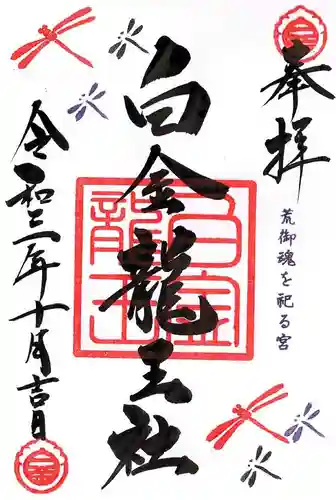 奉拝
荒御魂を祀る宮
白金龍王社
令和三年十月吉日